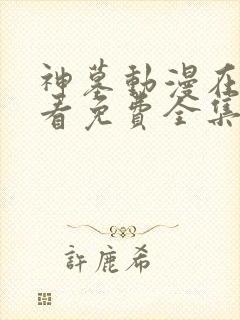 神墓動漫在
看免費全集
許鹿希